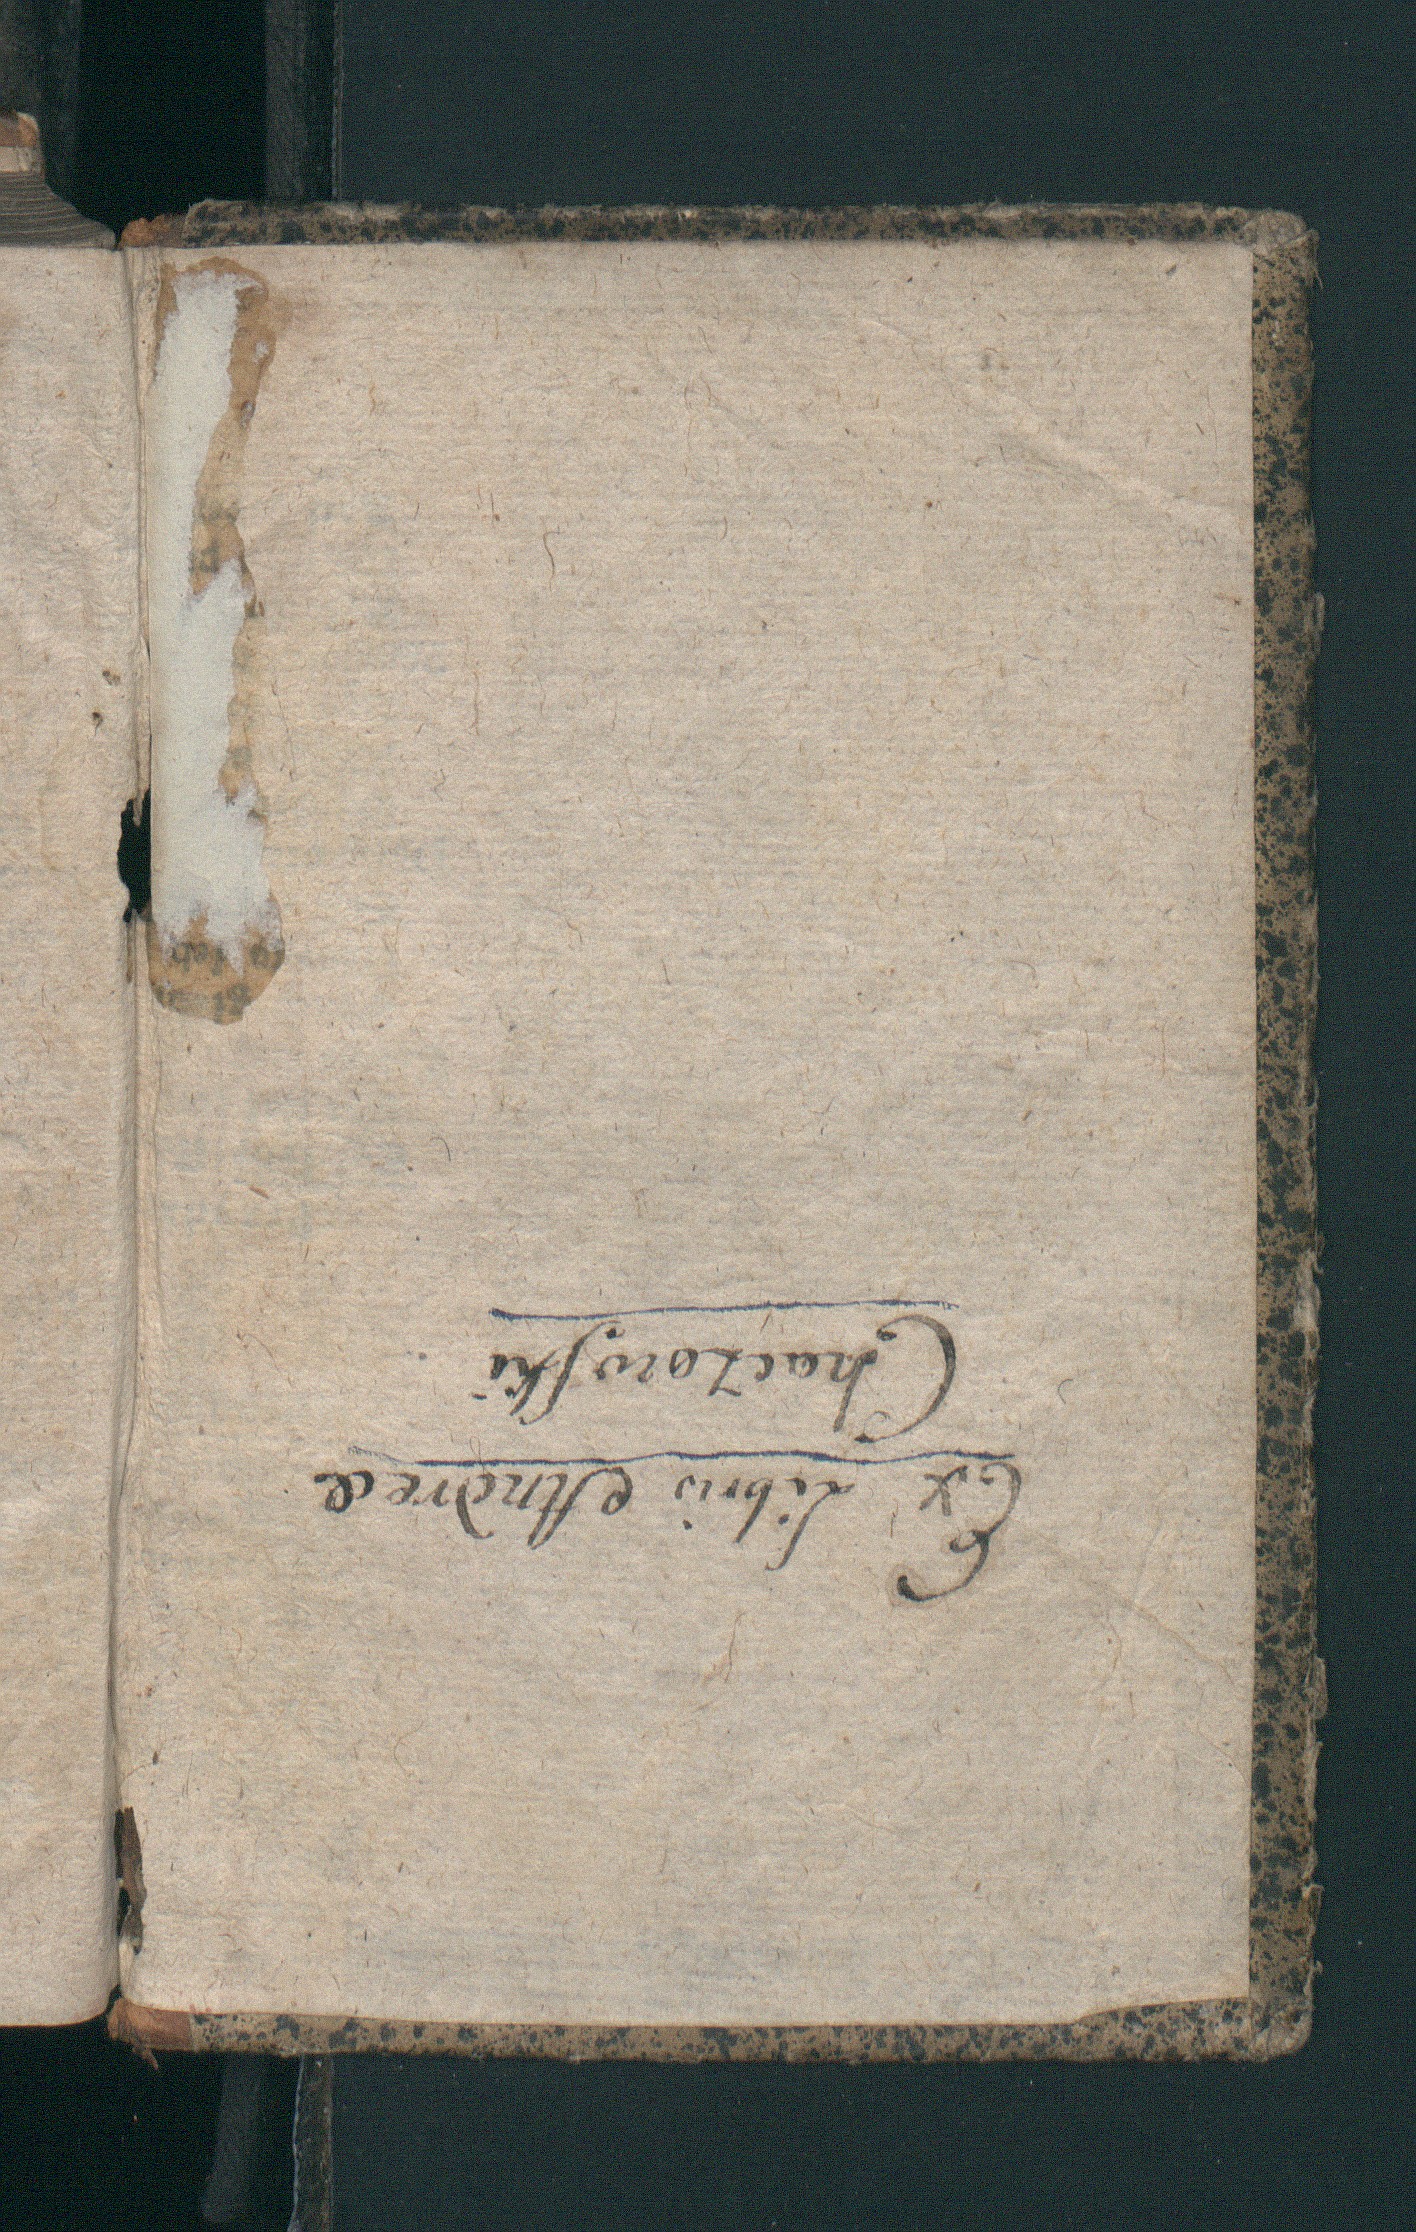 Ex Libris Andreæ
Chaczowski